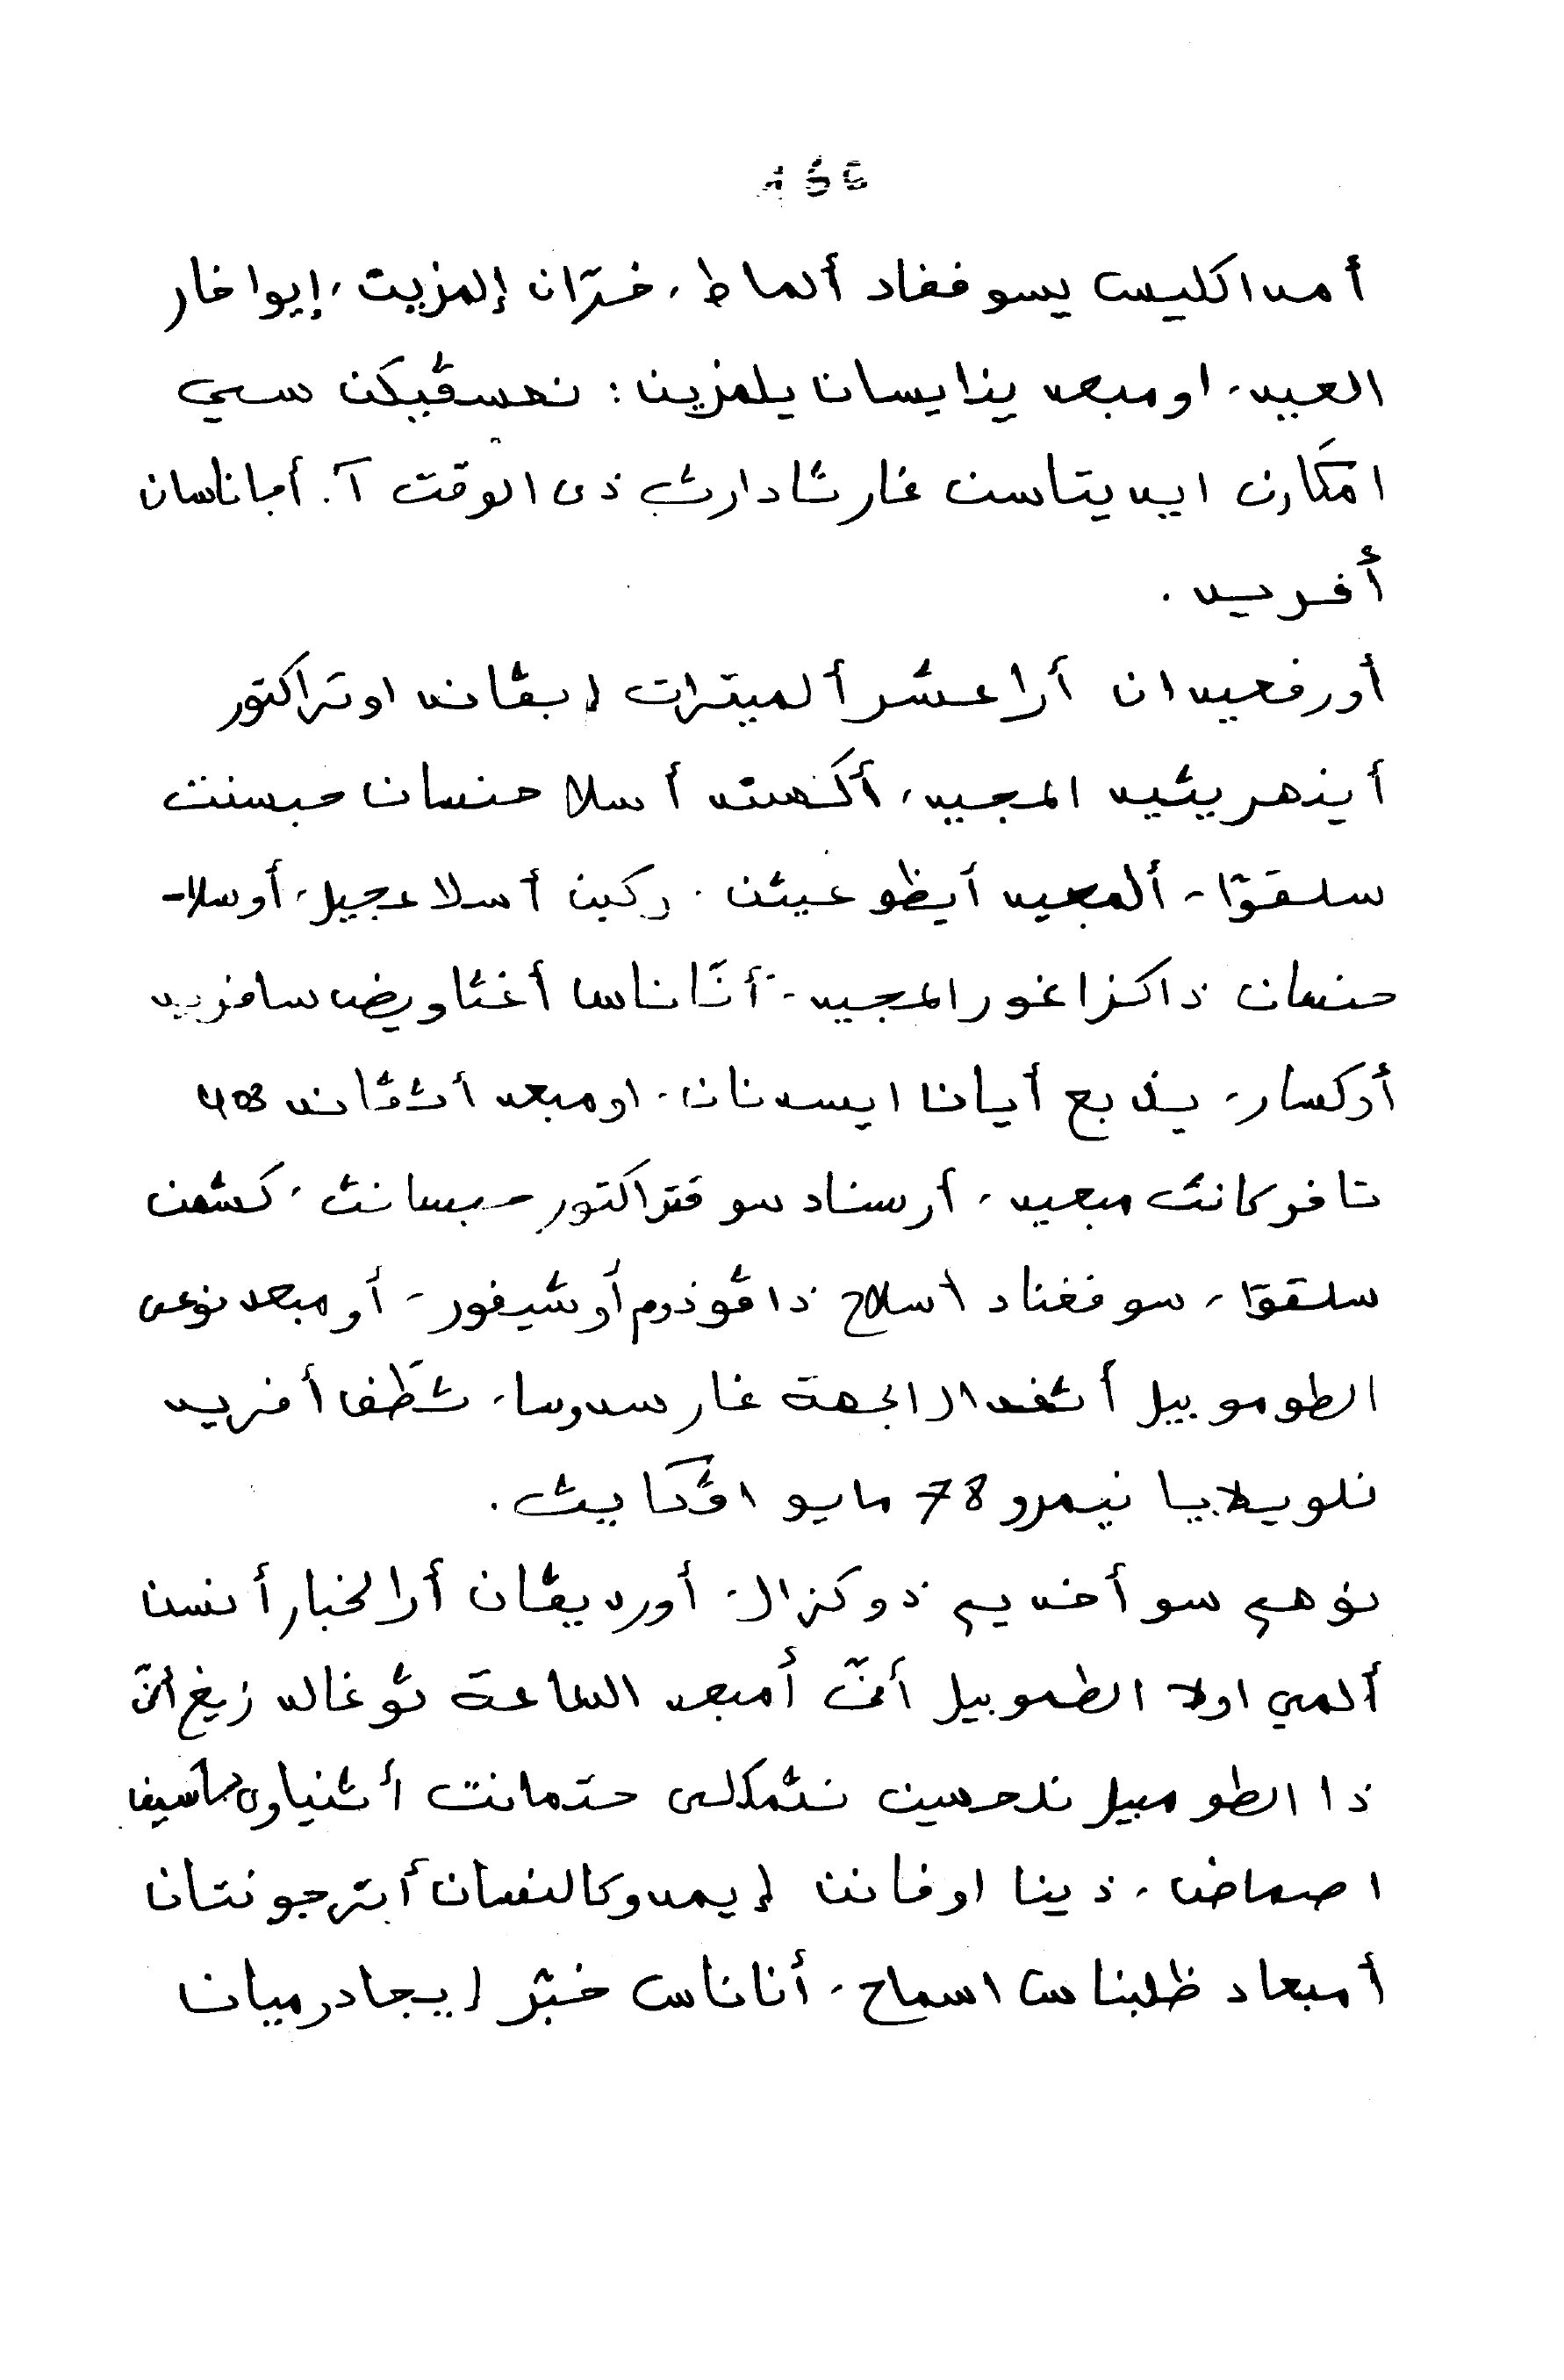 أمد اكليس يسوففاد ألماط، خزّان إلمزيت، إيوا خار
العيد، اومبعد ينا يسان يلمزين: نحسڤيكن سي
امكارن ايد يتاست غار ثادارث ذى الوقت آ. أجاناسان
أفريد.
أورفعيدان أرا عشر ألميترات إبڤاند اوتراكتور
أينهر يثيد المجيد، أكهنت أسلا حنسان حبسنت
سلقوّا، ألمجيد أيظوعيثن. ركين أسلا عجيل، أوسلا-
حنسان ذاكزاغور المجيد، أنّاناسا أغثاويض سافريد
أركسار، يذبع أيانا ايسدنان، اومبعد أثڤاند 403
تافركانث مبعيد، أرسناد سوڤتراكتور حبسانث، كشمن
سلقوّا، سوفغناد اسلاح ذاڤوذم أوشيفور، أومبعد نوعى
الطوموبيل أثغدالا الجهة غار سدوسا، ثطّف أفريد
نلويلايا نيمرو 78 مايو اڤكايث.
نوهي سوأخديم ذوكزال، أورديڤان أرا لخبار أنسن
ألمي اولا الطموبيل أنّ أمبعد الساعة ثوغالد زيغ أنّ
ذا الطومبيل نلحسين نثمكلى حتمانت أثنياون
اصماض، ذينا اوفانن إيمدوكالنسان أبترجونتان
أمبعاد ظلبناس اسماح، أناناس خبّر إيجادرميان